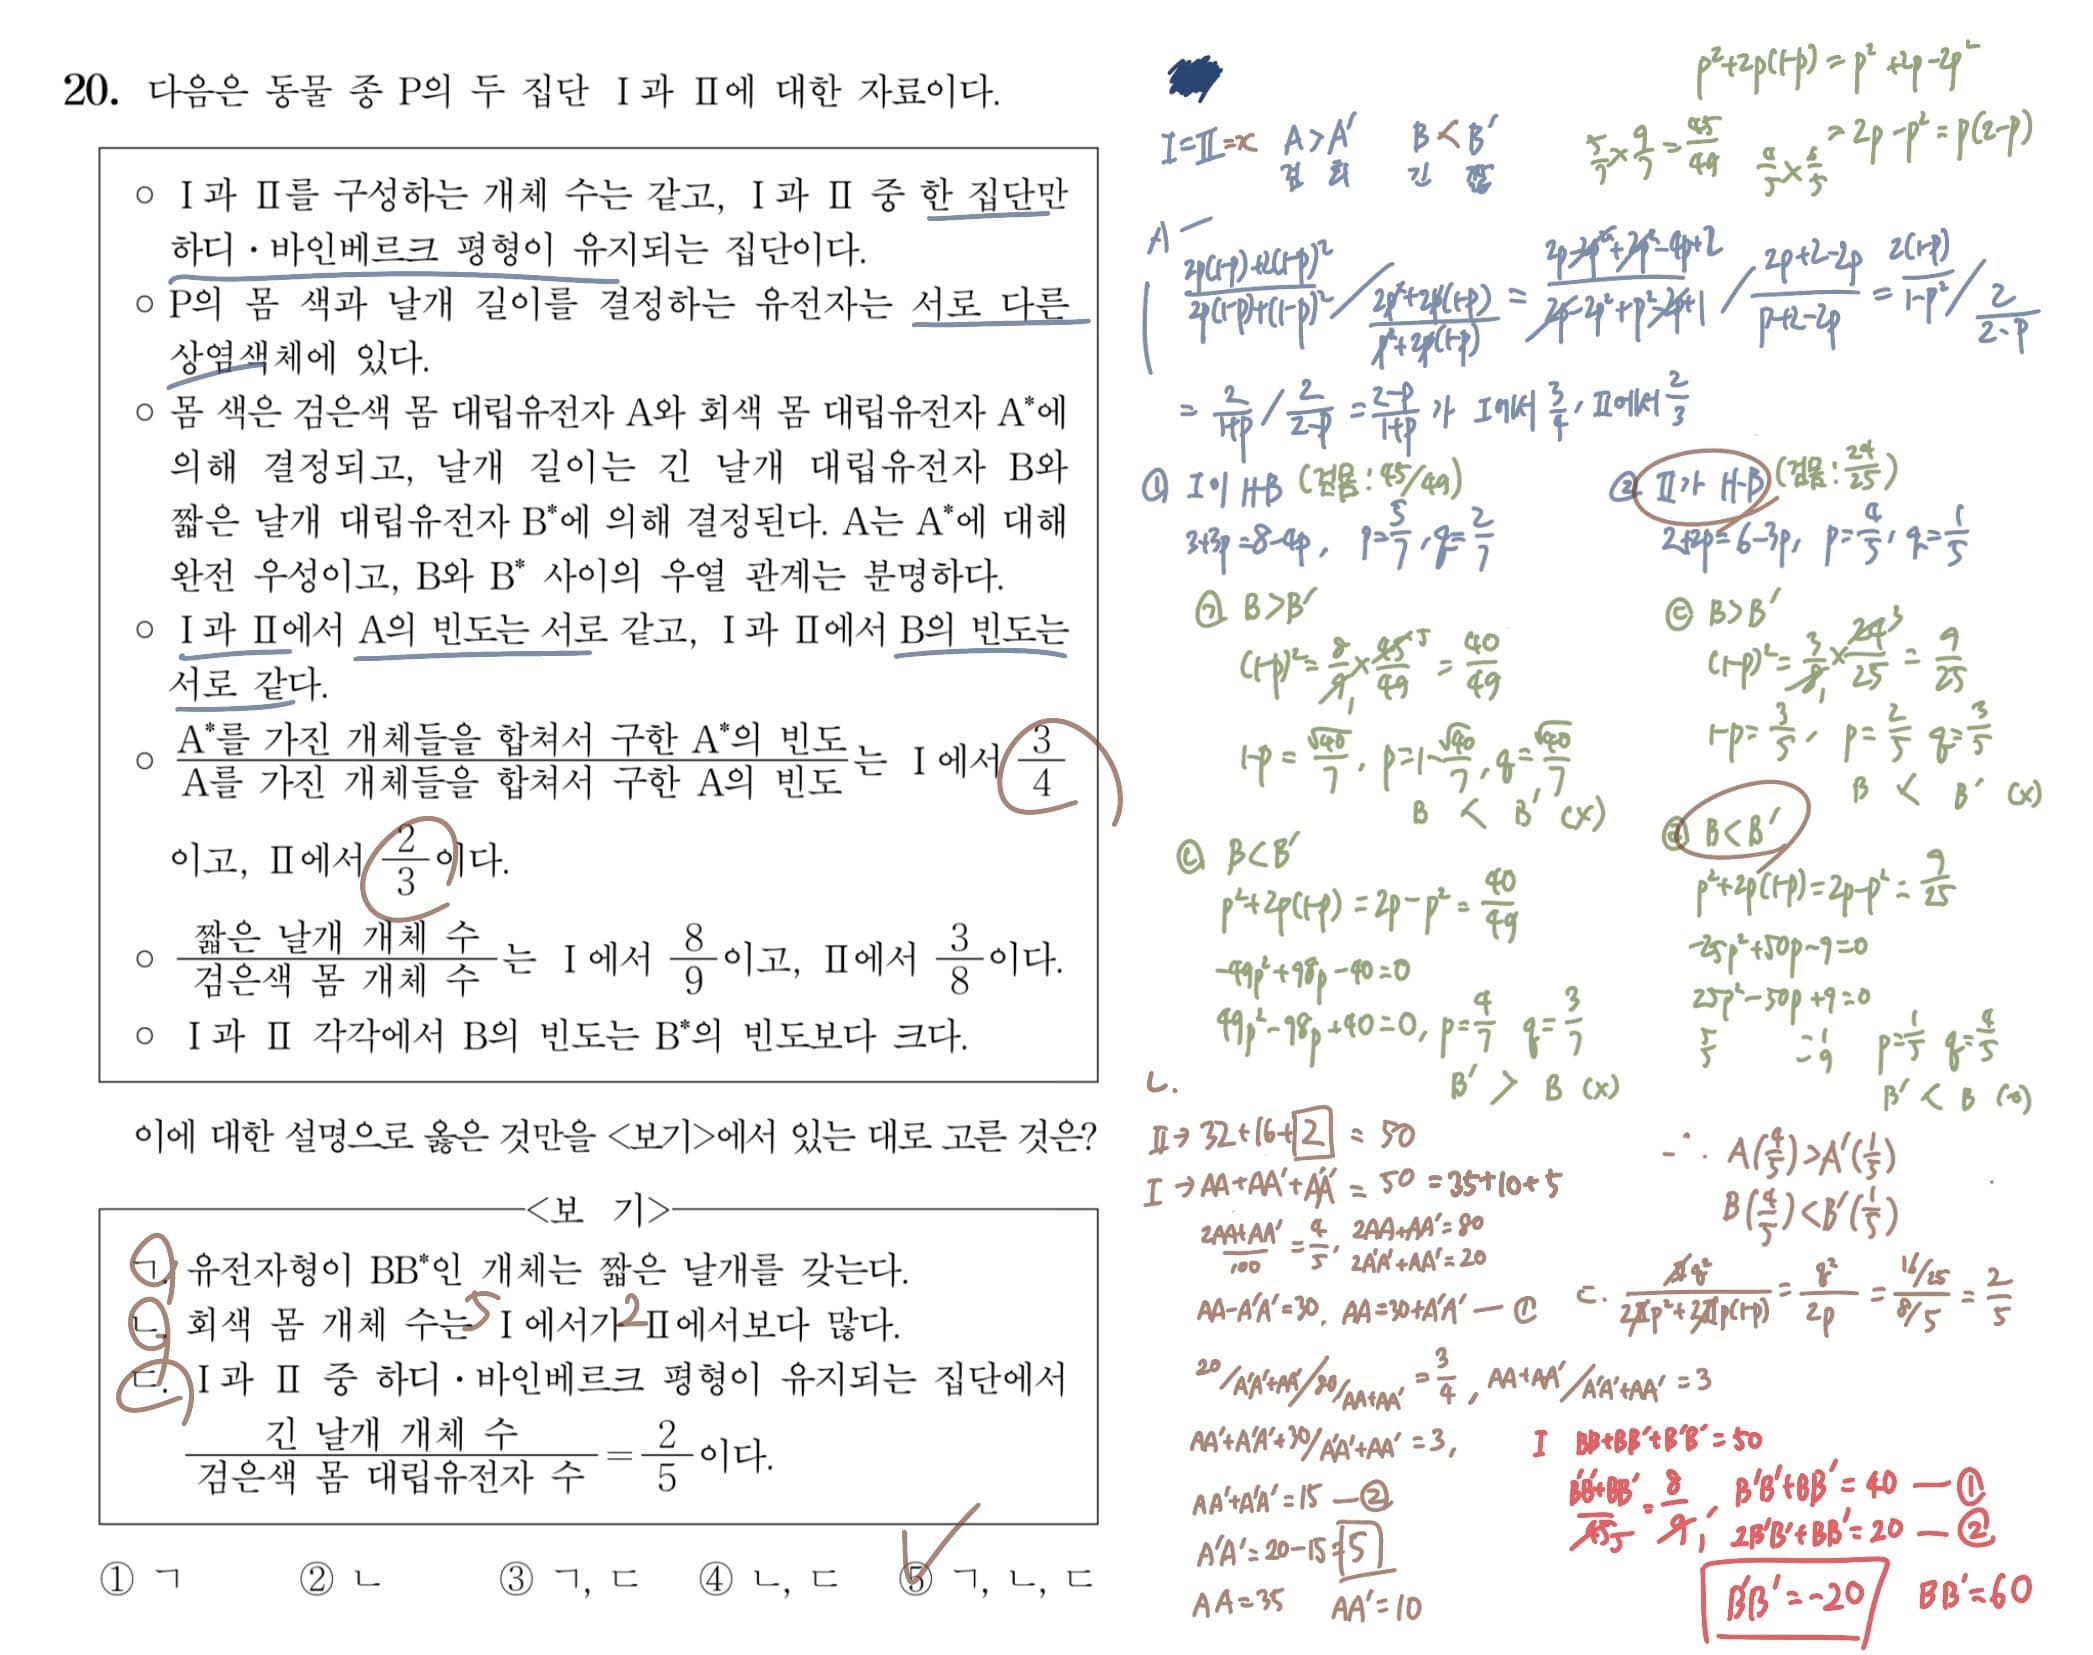 20. 다음은 동물 종 P의 두 집단 Ⅰ과 Ⅱ에 대한 자료이다.
○ Ⅰ과 Ⅱ를 구성하는 개체 수는 같고, Ⅰ과 Ⅱ 중 한 집단만
하디·바인베르크 평형이 유지되는 집단이다.
○ P의 몸 색과 날개 길이를 결정하는 유전자는 서로 다른
상염색체에 있다.
○ 몸 색은 검은색 몸 대립유전자 A와 회색 몸 대립유전자 A*에
의해 결정되고, 날개 길이는 긴 날개 대립유전자 B와
짧은 날개 대립유전자 B*에 의해 결정된다. A는 A*에 대해
완전 우성이고, B와 B* 사이의 우열 관계는 분명하다.
○ Ⅰ과 Ⅱ에서 A의 빈도는 서로 같고, Ⅰ과 Ⅱ에서 B의 빈도는
서로 같다.
○ A*를 가진 개체들을 합쳐서 구한 A*의 빈도 / A를 가진 개체들을 합쳐서 구한 A의 빈도 는 Ⅰ에서 3/4
이고, Ⅱ에서 2/3이다.
○ 짧은 날개 개체 수 / 검은색 몸 개체 수 는 Ⅰ에서 8/9이고, Ⅱ에서 3/8이다.
○ Ⅰ과 Ⅱ 각각에서 B의 빈도는 B*의 빈도보다 크다.
이에 대한 설명으로 옳은 것만을 <보기>에서 있는 대로 고른 것은?
<보 기>
ㄱ. 유전자형이 BB*인 개체는 짧은 날개를 갖는다.
ㄴ. 회색 몸 개체 수는 5 Ⅰ에서가 2 Ⅱ에서보다 많다.
ㄷ. Ⅰ과 Ⅱ 중 하디·바인베르크 평형이 유지되는 집단에서
긴 날개 개체 수 / 검은색 몸 대립유전자 수 = 2/5이다.
① ㄱ ② ㄴ ③ ㄱ, ㄷ ④ ㄴ, ㄷ ⑤ ㄱ, ㄴ, ㄷ
p²+2p(1-p) = p²+2p-2p²
= 2p-p² = p(2-p)
Ⅰ=Ⅱ=x A>A' B<B'
검 회 긴 짧
5/7 × 9/7 = 45/49
4/5 × 6/5
2p(1-p)+2(1-p)² / 2p(1-p)+(1-p)² / 2p²+2p(1-p) / p²+2p(1-p) = 2p-2p²+2p²-4p+2 / 2p-2p²+p²-2p+1 / 2p+2-2p / p+2-2p = 2(1-p) / 1-p² / 2 / 2-p
= 2/1+p / 2/2-p = 2-p/1+p 가 Ⅰ에서 3/4, Ⅱ에서 2/3
① Ⅰ이 H-B (검몸: 45/49)
3+3p=8-4p, p=5/7, q=2/7
㉠ B>B'
(1-p)² = 8/9 × 45/49 = 40/49
1-p = √40/7, p=1-√40/7, q=√40/7
B < B' (x)
㉡ B<B'
p²+2p(1-p) = 2p-p² = 40/49
-49p²+98p-40=0
49p²-98p+40=0, p=4/7 q=3/7
B' > B (x)
② Ⅱ가 H-B (검몸: 24/25)
2+2p=6-3p, p=4/5, q=1/5
㉢ B>B'
(1-p)² = 3/8 × 24/25 = 9/25
1-p=3/5, p=2/5 q=3/5
B < B' (x)
㉣ B<B'
p²+2p(1-p)=2p-p² = 9/25
-25p²+50p-9=0
25p²-50p+9=0
5 -1
5 -9 p=1/5 q=4/5
B' < B (o)
∴ A(4/5)>A'(1/5)
B(4/5)<B'(1/5)
ㄴ.
Ⅱ→ 32+16+2 = 50
Ⅰ→ AA+AA'+A'A' = 50 = 35+10+5
2AA+AA'/100 = 4/5, 2AA+AA'=80
2A'A'+AA'=20
AA-A'A'=30, AA=30+A'A' — ①
20/A'A'+AA' / 80/AA+AA' = 3/4, AA+AA'/A'A'+AA' = 3
AA'+A'A'+30/A'A'+AA' = 3,
AA'+A'A'=15 — ②
A'A'=20-15=5
AA=35 AA'=10
ㄷ. q² / 2p²+2p(1-p) = q²/2p = 16/25 / 8/5 = 2/5
Ⅰ BB+BB'+B'B'=50
B'B'+BB'/45 = 8/9, B'B'+BB'=40 — ①
2B'B'+BB'=20 — ②
B'B'=-20 BB'=60